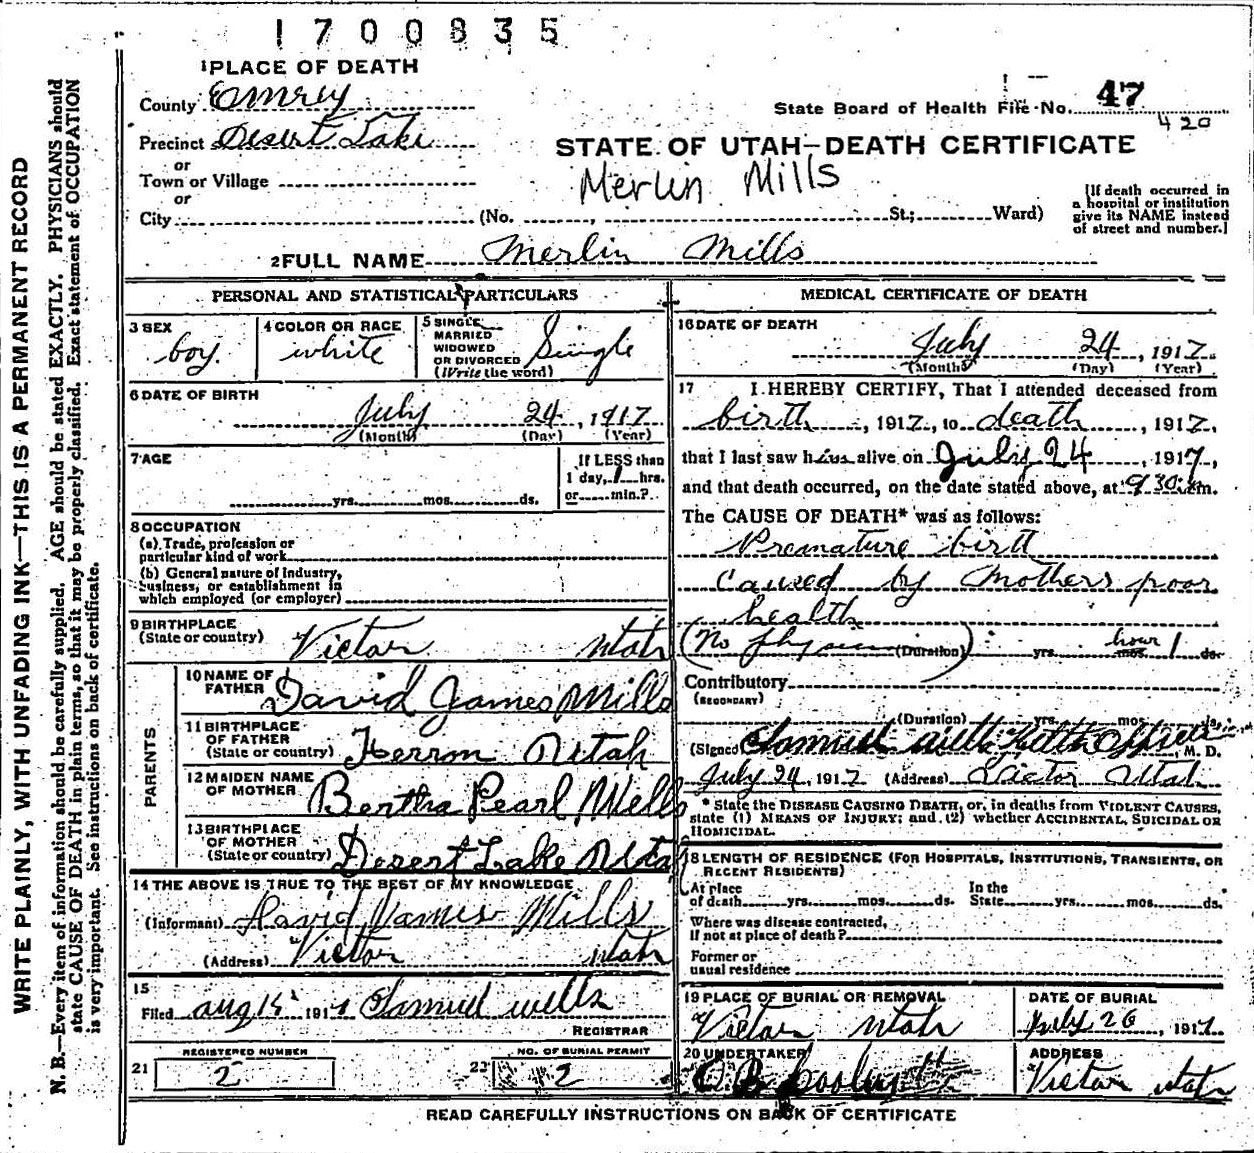 1700835
1 PLACE OF DEATH
County Emrey
State Board of Health File No. 47
420
Precinct Desert Lake
STATE OF UTAH—DEATH CERTIFICATE
or
Town or Village
Merlin Mills
or
City (No. , St.; Ward)
[If death occurred in
a hospital or institution
give its NAME instead
of street and number.]
2 FULL NAME Merlin Mills
PERSONAL AND STATISTICAL PARTICULARS
3 SEX
boy
4 COLOR OR RACE
white
5 SINGLE
MARRIED
WIDOWED
OR DIVORCED
(Write the word)
Single
6 DATE OF BIRTH
July 24, 1917
(Month) (Day) (Year)
7 AGE
yrs. mos. ds.
If LESS than
1 day, 1 hrs.
or min.?
8 OCCUPATION
(a) Trade, profession or
particular kind of work
(b) General nature of industry,
business, or establishment in
which employed (or employer)
9 BIRTHPLACE
(State or country) Victor Utah
PARENTS
10 NAME OF
FATHER David James Mills
11 BIRTHPLACE
OF FATHER
(State or country) Ferron Utah
12 MAIDEN NAME
OF MOTHER Bertha Pearl Wells
13 BIRTHPLACE
OF MOTHER
(State or country) Desert Lake Utah
14 THE ABOVE IS TRUE TO THE BEST OF MY KNOWLEDGE
(Informant) David James Mills
(Address) Victor Utah
15
Filed Aug 15 1917 Samuel Wells
REGISTRAR
21 REGISTERED NUMBER
2
22 NO. OF BURIAL PERMIT
2
MEDICAL CERTIFICATE OF DEATH
16 DATE OF DEATH
July 24, 1917.
(Month) (Day) (Year)
17 I HEREBY CERTIFY, That I attended deceased from
birth, 1917, to death, 1917,
that I last saw him alive on July 24, 1917,
and that death occurred, on the date stated above, at 9 30 am.
The CAUSE OF DEATH* was as follows:
Premature birth
caused by Mothers poor
health
(No physician) (Duration) yrs. hour mos. 1 ds.
Contributory
(SECONDARY)
(Duration) yrs. mos. ds.
(Signed) Samuel Wells Health Officer M. D.
July 24, 1917 (Address) Victor Utah
* State the DISEASE CAUSING DEATH, or, in deaths from VIOLENT CAUSES,
state (1) MEANS OF INJURY; and (2) whether ACCIDENTAL, SUICIDAL OR
HOMICIDAL.
18 LENGTH OF RESIDENCE (FOR HOSPITALS, INSTITUTIONS, TRANSIENTS, OR
RECENT RESIDENTS)
At place
of death yrs. mos. ds.
In the
State yrs. mos. ds.
Where was disease contracted,
If not at place of death?
Former or
usual residence
19 PLACE OF BURIAL OR REMOVAL
Victor Utah
DATE OF BURIAL
July 26, 1917
20 UNDERTAKER
ADDRESS
Victor Utah
READ CAREFULLY INSTRUCTIONS ON BACK OF CERTIFICATE
WRITE PLAINLY, WITH UNFADING INK—THIS IS A PERMANENT RECORD
N. B.—Every item of information should be carefully supplied. AGE should be stated EXACTLY. PHYSICIANS should
state CAUSE OF DEATH in plain terms, so that it may be properly classified. Exact statement of OCCUPATION
is very important. See instructions on back of certificate.